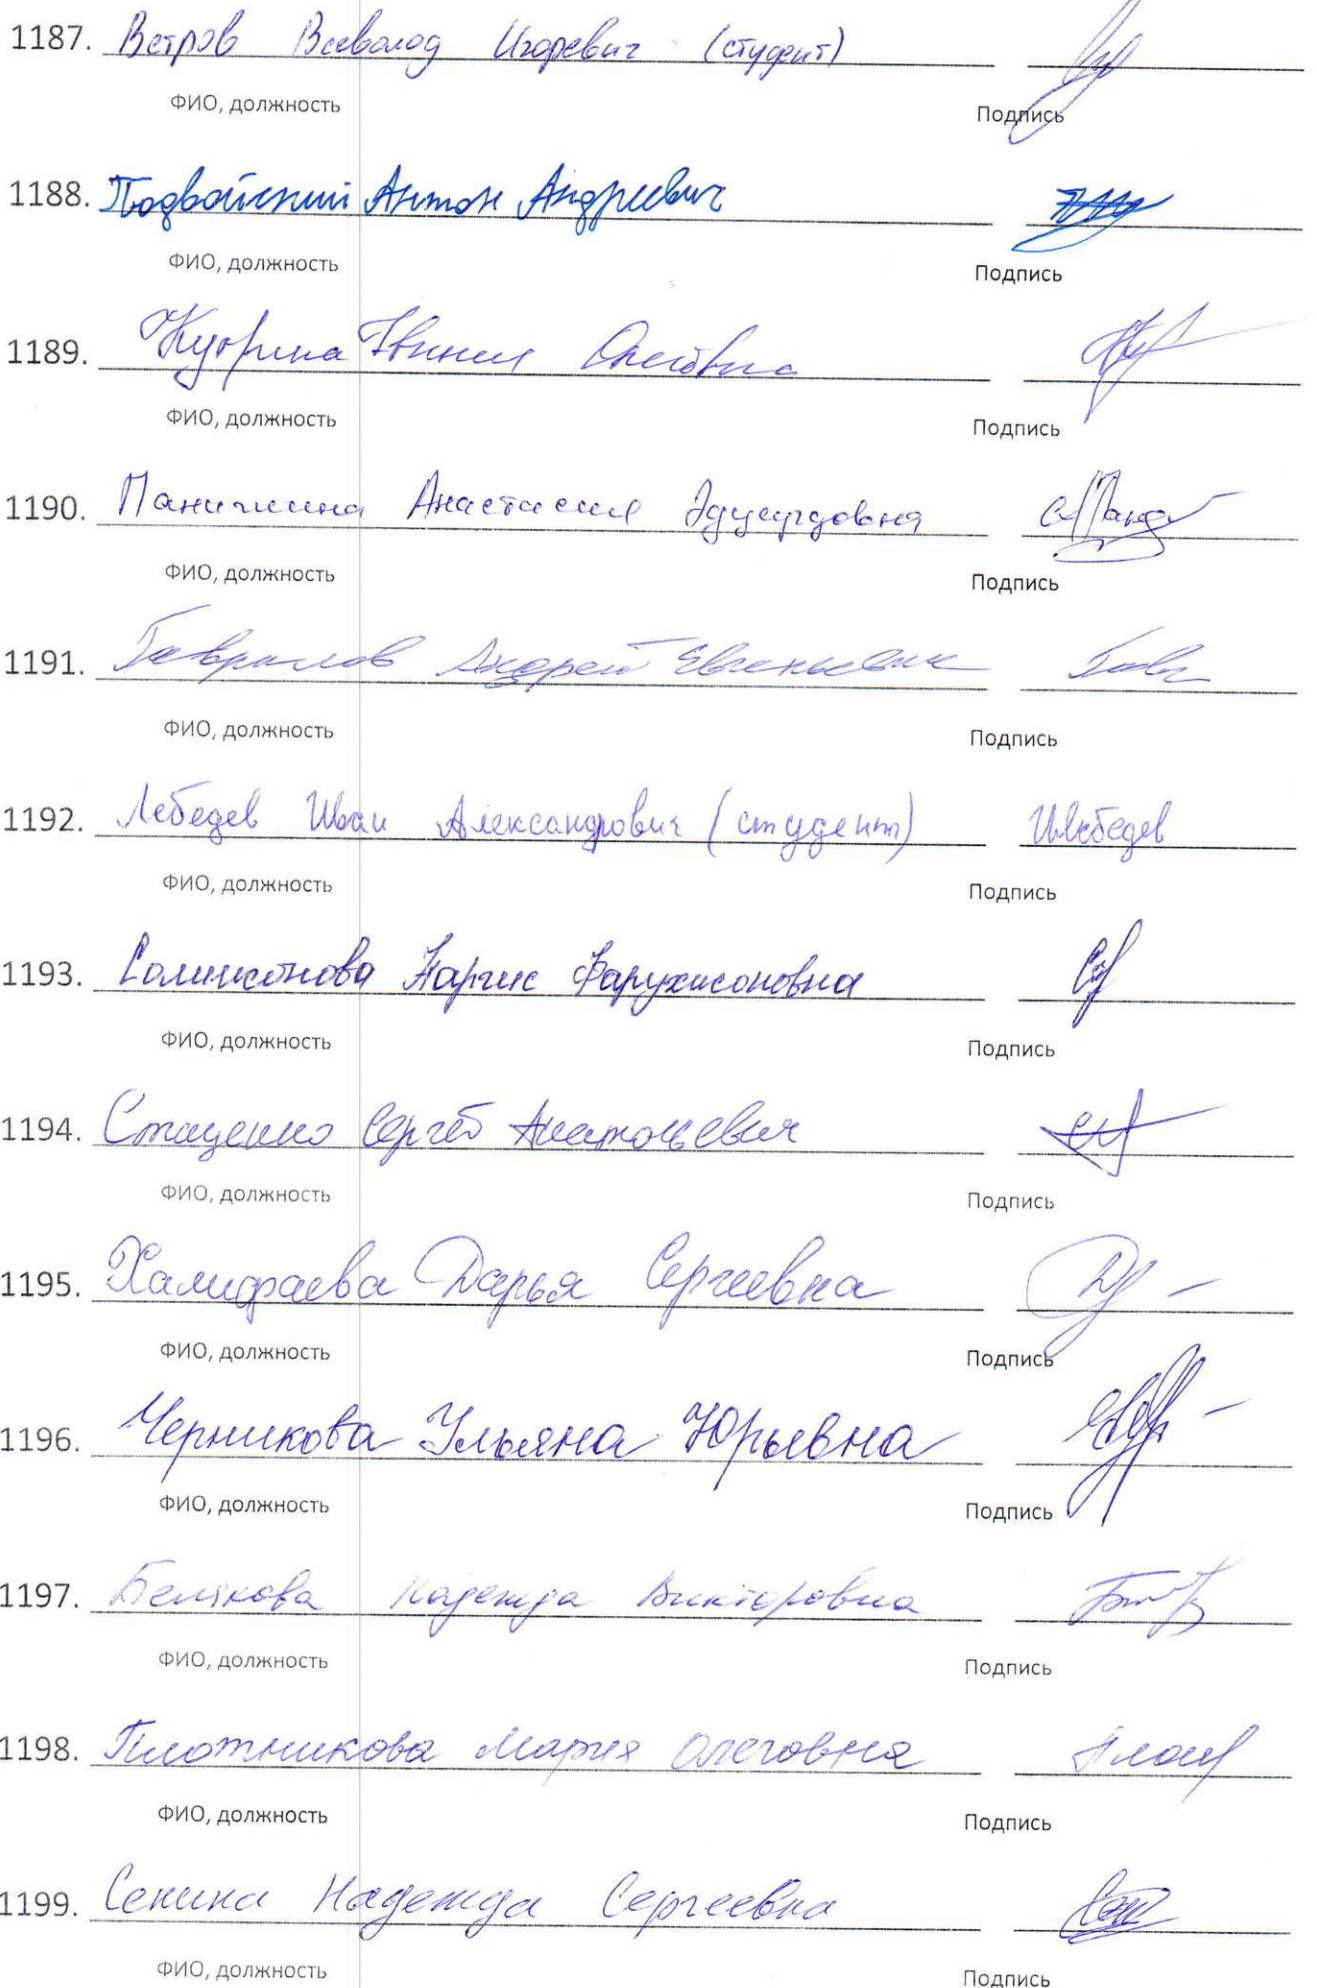 1187. Ветров Всеволод Игоревич (студент)
ФИО, должность Подпись
1188. Подвойский Антон Андреевич
ФИО, должность Подпись
1189. Олеговна
ФИО, должность Подпись
1190. Паничкина Анастасия Эдуардовна
ФИО, должность Подпись
1191. Гаврилов Андрей Евгеньевич
ФИО, должность Подпись
1192. Лебедев Иван Александрович (студент) ИЛебедев
ФИО, должность Подпись
1193. Наргис
ФИО, должность Подпись
1194. Стаценко Сергей Анатольевич
ФИО, должность Подпись
1195. Халифаева Дарья Сергеевна
ФИО, должность Подпись
1196. Черникова Ульяна Юрьевна
ФИО, должность Подпись
1197. Белякова Надежда Викторовна
ФИО, должность Подпись
1198. Плотникова Мария Олеговна
ФИО, должность Подпись
1199. Сенина Надежда Сергеевна
ФИО, должность Подпись